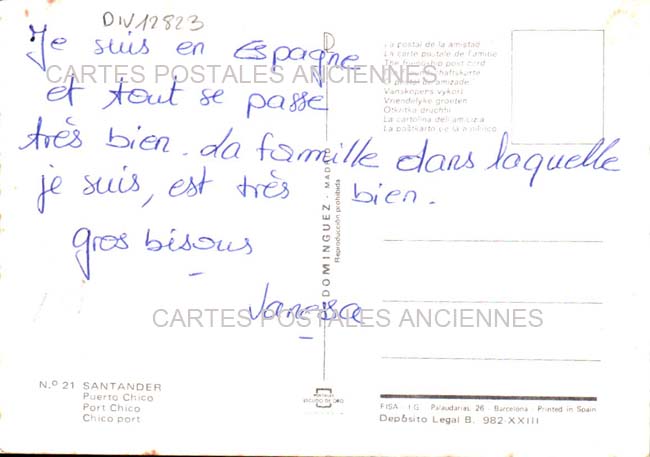 DIV12823
Je suis en Espagne
et tout se passe
très bien. La famille dans laquelle
je suis, est très bien.
gros bisous
Vanessa
CARTES POSTALES ANCIENNES
CARTES POSTALES ANCIENNES
La postal de la amistad
La carte postale de l'amitié
The friendship post card
Vriendelyke groeten
La cartolina dell'amicizia
DOMINGUEZ - MADRID
Reproducción prohibida
N.º 21 SANTANDER
Puerto Chico
Port Chico
Chico port
POSTALES
ESCUDO DE ORO
FISA - I.G. Palaudarias, 26 - Barcelona - Printed in Spain
Depósito Legal B. 982-XXIII